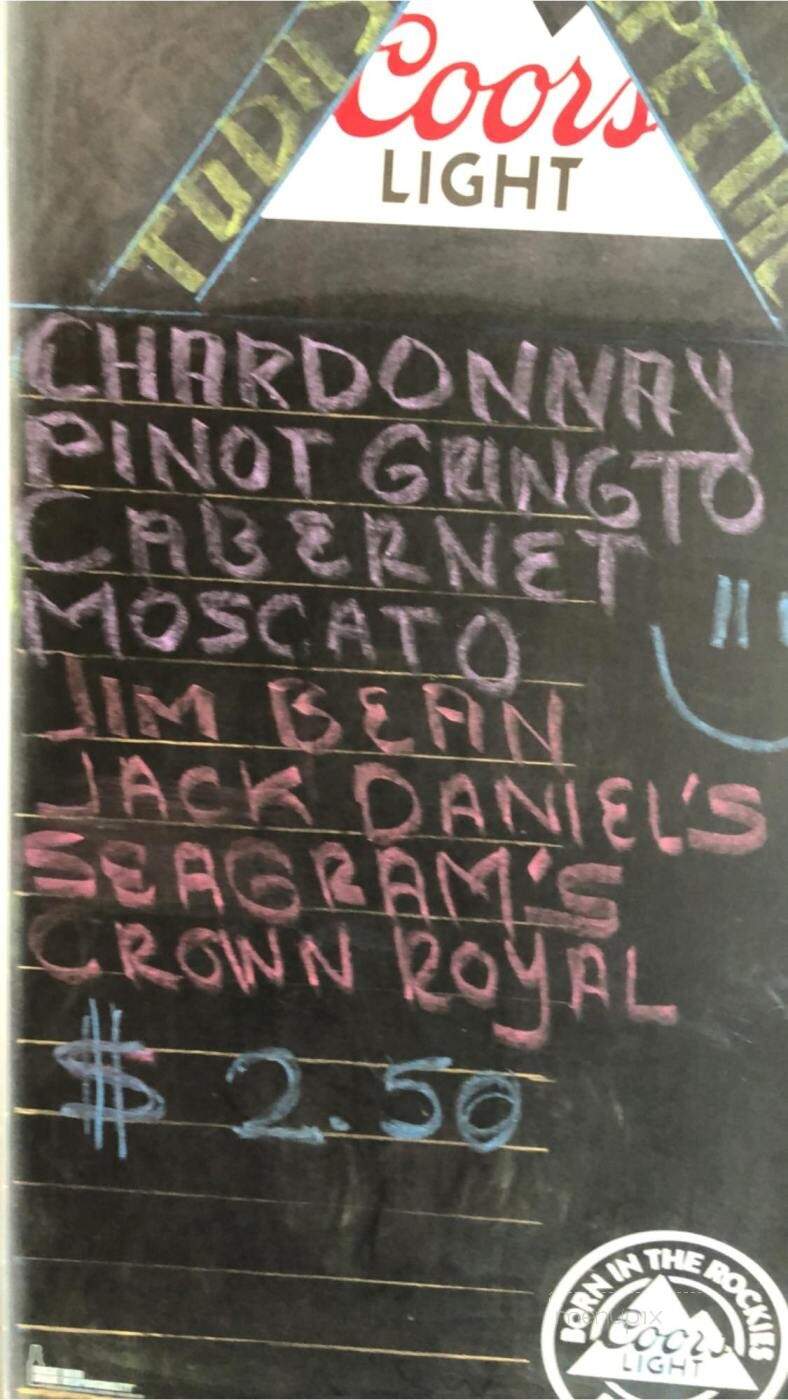 TODAY
Coors
LIGHT
CHARDONNAY
PINOT GRINGTO
CABERNET
MOSCATO
JIM BEAN
JACK DANIEL'S
SEAGRAM'S
CROWN ROYAL
$ 2.50
BORN IN THE ROCKIES
Coors
LIGHT